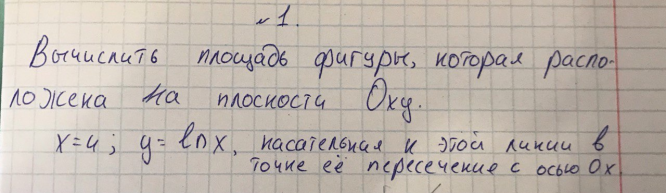 №1.
Вычислить площадь фигуры, которая распо-
ложена на плоскости Oxy.
x=4; y=lnx, касательная к этой линии в
точке её пересечение с осью Ox